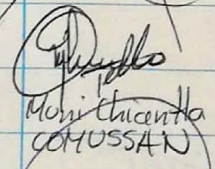 Muni Chicentla
COMUSSAN